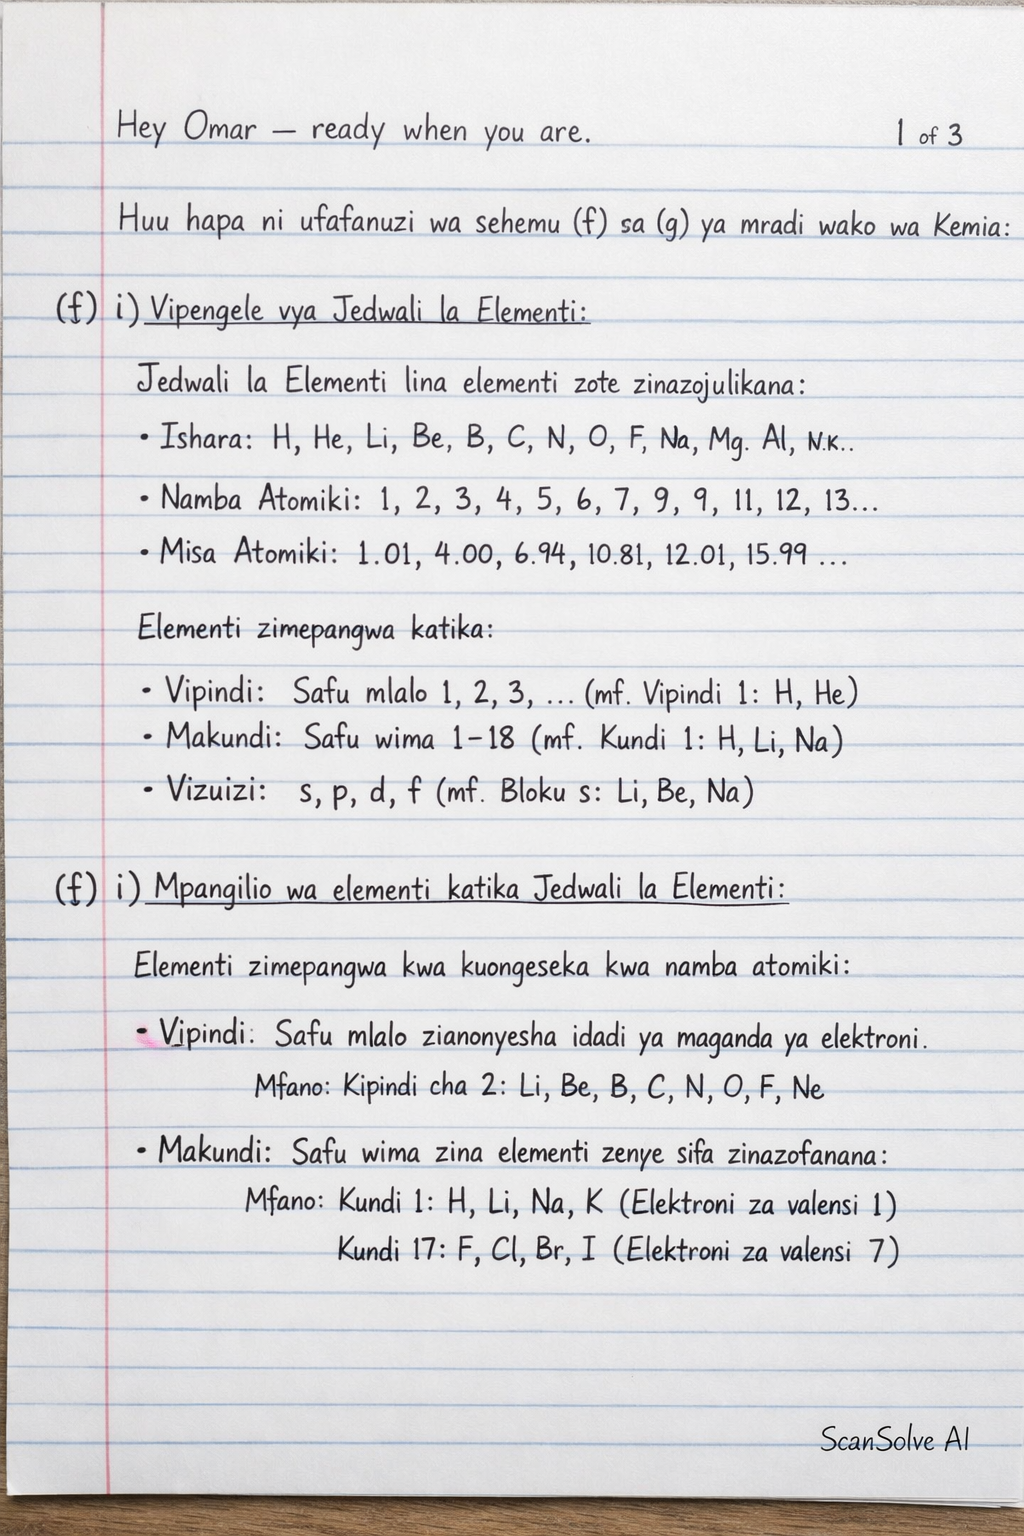 Hey Omar — ready when you are.
1 of 3
Huu hapa ni ufafanuzi wa sehemu (f) sa (g) ya mradi wako wa Kemia:
(f) i) Vipengele vya Jedwali la Elementi:
Jedwali la Elementi lina elementi zote zinazojulikana:
• Ishara: H, He, Li, Be, B, C, N, O, F, Na, Mg. Al, N.K..
• Namba Atomiki: 1, 2, 3, 4, 5, 6, 7, 9, 9, 11, 12, 13...
• Misa Atomiki: 1.01, 4.00, 6.94, 10.81, 12.01, 15.99 ...
Elementi zimepangwa katika:
• Vipindi: Safu mlalo 1, 2, 3, ... (mf. Vipindi 1: H, He)
• Makundi: Safu wima 1-18 (mf. Kundi 1: H, Li, Na)
• Vizuizi: s, p, d, f (mf. Bloku s: Li, Be, Na)
(f) i) Mpangilio wa elementi katika Jedwali la Elementi:
Elementi zimepangwa kwa kuongeseka kwa namba atomiki:
• Vipindi: Safu mlalo zianonyesha idadi ya maganda ya elektroni.
Mfano: Kipindi cha 2: Li, Be, B, C, N, O, F, Ne
• Makundi: Safu wima zina elementi zenye sifa zinazofanana:
Mfano: Kundi 1: H, Li, Na, K (Elektroni za valensi 1)
Kundi 17: F, Cl, Br, I (Elektroni za valensi 7)
ScanSolve AI